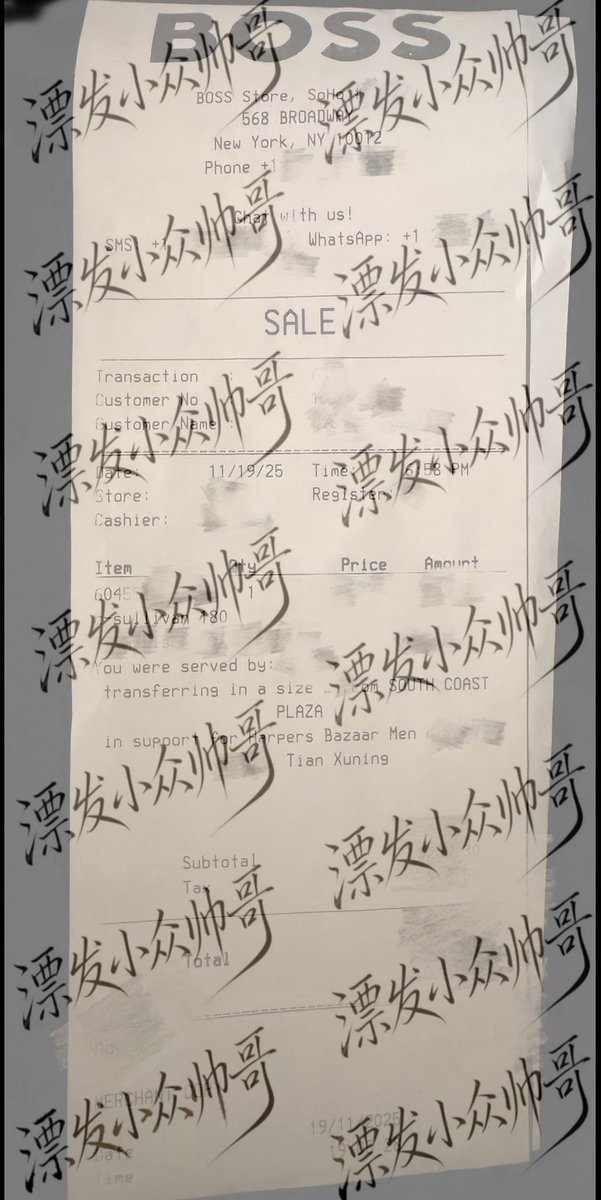 BOSS
BOSS Store, SoHo
568 BROADWAY
New York, NY 10012
Phone +1
Chat with us!
SMS: +1 WhatsApp: +1
SALE
Transaction :
Customer No :
Customer Name :
Date: 11/19/25 Time: 6:58 PM
Store: Register:
Cashier:
Item Qty Price Amount
6045 1
sullivan 180
You were served by:
transferring in a size from SOUTH COAST
PLAZA
in support for Harpers Bazaar Men
Tian Xuning
Subtotal
Tax
Total
MERCHANT
19/11/2025
Date
Time
漂发小众帅哥
漂发小众帅哥
漂发小众帅哥
漂发小众帅哥
漂发小众帅哥
漂发小众帅哥
漂发小众帅哥
漂发小众帅哥
漂发小众帅哥
漂发小众帅哥
漂发小众帅哥
漂发小众帅哥
漂发小众帅哥
漂发小众帅哥